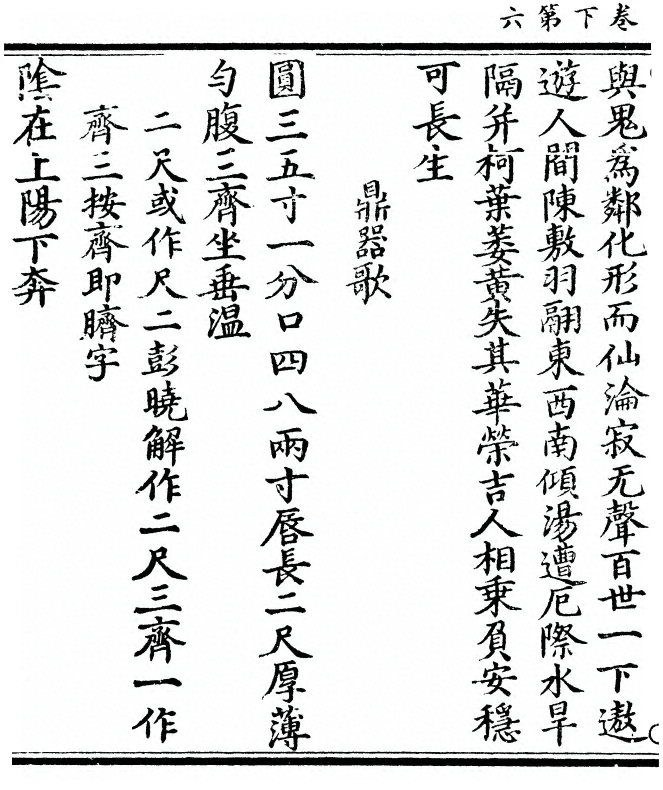 卷下第六
與鬼為鄰化形而仙淪寂无聲百世一下遨
遊人間陳敷羽翮東西南傾湯遭厄際水旱
隔并柯葉萎黃失其華榮吉人相乘負安穩
可長生
鼎器歌
圓三五寸一分口四八兩寸唇長二尺厚薄
勻腹三齊坐垂温
二尺或作尺二彭曉解作二尺三齊一作
齊三按齊即臍字
陰在上陽下奔